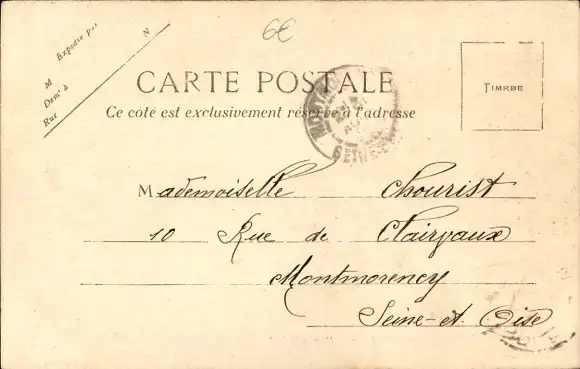 6€
Expédié par
M
N
Demt à
Rue
CARTE POSTALE
Ce côté est exclusivement réservé à l'adresse
TIMRBE
Mademoiselle Chourist
10 Rue de Clairvaux
Montmorency
Seine-et-Oise